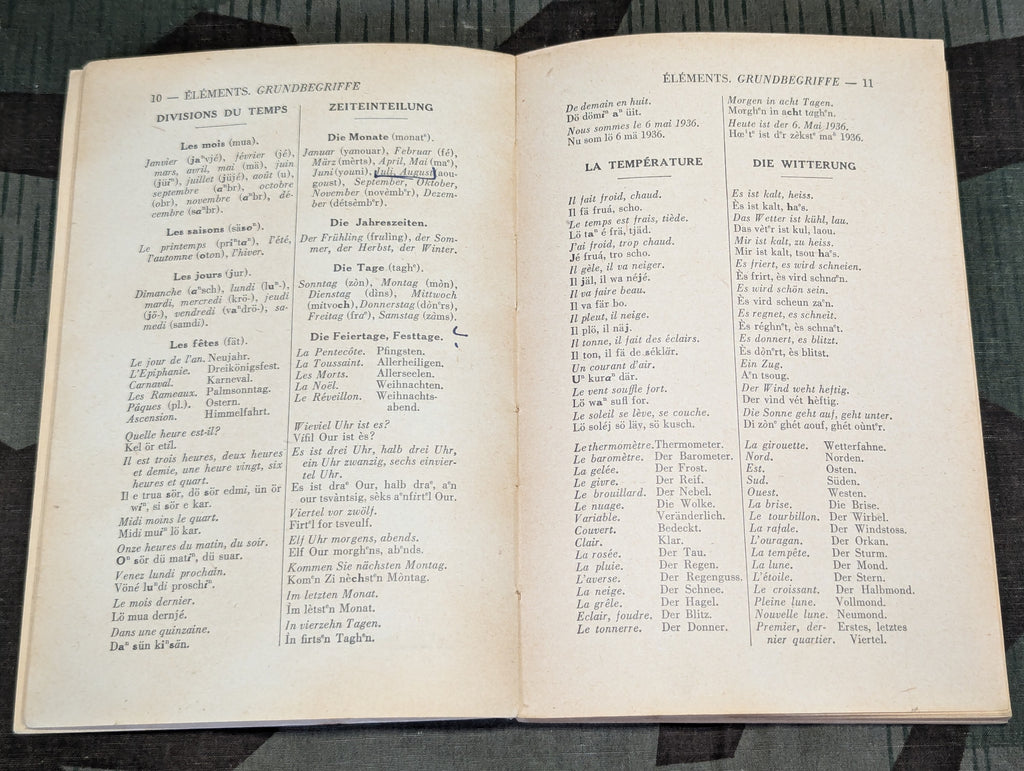 10 — ÉLÉMENTS. GRUNDBEGRIFFE
DIVISIONS DU TEMPS
Les mois (mua).
Janvier (jaⁿvjé), février (jé),
mars, avril, mai (mä), juin
(jüiⁿ), juillet (jüjé), août (u),
septembre (aⁿbr), octobre
(obr), novembre (aⁿbr), dé-
cembre (saⁿbr).
Les saisons (säsoⁿ).
Le printemps (priⁿtaⁿ), l'été,
l'automne (oton), l'hiver.
Les jours (jur).
Dimanche (aⁿsch), lundi (luⁿ-),
mardi, mercredi (krö-), jeudi
(jö-), vendredi (vaⁿdrö-), sa-
medi (samdi).
Les fêtes (fät).
Le jour de l'an. Neujahr.
L'Epiphanie. Dreikönigsfest.
Carnaval. Karneval.
Les Rameaux. Palmsonntag.
Pâques (pl.). Ostern.
Ascension. Himmelfahrt.
Quelle heure est-il?
Kel ör etil.
Il est trois heures, deux heures
et demie, une heure vingt, six
heures et quart.
Il e trua sör, dö sör edmi, ün ör
wiⁿ, si sör e kar.
Midi moins le quart.
Midi muiⁿ lö kar.
Onze heures du matin, du soir.
Oⁿ sör dü matiⁿ, dü suar.
Venez lundi prochain.
Vöné luⁿdi proschiⁿ.
Le mois dernier.
Lö mua dernjé.
Dans une quinzaine.
Daⁿ sün kiⁿsän.
ZEITEINTEILUNG
Die Monate (monatᵉ).
Januar (yanouar), Februar (fé),
März (mèrts), April, Mai (maᵉ),
Juni (youni), Juli, August (aou-
goust), September, Oktober,
November (novèmbᵉr), Dezem-
ber (détsèmbᵉr).
Die Jahreszeiten.
Der Frühling (fruling), der Som-
mer, der Herbst, der Winter.
Die Tage (taghᵉ).
Sonntag (zòn), Montag (mòn),
Dienstag (dîns), Mittwoch
(mitvoch), Donnerstag (dònᵉrs),
Freitag (fraᵉ), Samstag (zàms).
Die Feiertage, Festtage.
La Pentecôte. Pfingsten.
La Toussaint. Allerheiligen.
Les Morts. Allerseelen.
La Noël. Weihnachten.
Le Réveillon. Weihnachts-
abend.
Wieviel Uhr ist es?
Vifîl Our ist ès?
Es ist drei Uhr, halb drei Uhr,
ein Uhr zwanzig, sechs einvier-
tel Uhr.
Es ist draᵉ Our, halb draᵉ, aᵉn
our tsvàntsig, sèks aᵉnfirtᵉl Our.
Viertel vor zwölf.
Firtᵉl for tsveulf.
Elf Uhr morgens, abends.
Elf Our morghᵉns, abᵉnds.
Kommen Sie nächsten Montag.
Komᵉn Zi nèchstᵉn Mòntag.
Im letzten Monat.
Im lètstᵉn Monat.
In vierzehn Tagen.
In firtsᵉn Taghᵉn.
ÉLÉMENTS. GRUNDBEGRIFFE — 11
De demain en huit.
Dö dömiⁿ aⁿ üit.
Nous sommes le 6 mai 1936.
Nu som lö 6 mä 1936.
LA TEMPÉRATURE
Il fait froid, chaud.
Il fä fruá, scho.
Le temps est frais, tiède.
Lö taⁿ é frä, tjäd.
J'ai froid, trop chaud.
Jé fruá, tro scho.
Il gèle, il va neiger.
Il jäl, il wa néjé.
Il va faire beau.
Il va fär bo.
Il pleut, il neige.
Il plö, il näj.
Il tonne, il fait des éclairs.
Il ton, il fä de séklär.
Un courant d'air.
Uⁿ kuraⁿ där.
Le vent souffle fort.
Lö waⁿ sufl for.
Le soleil se lève, se couche.
Lö soléj sö läy, sö kusch.
Le thermomètre. Thermometer.
Le baromètre. Der Barometer.
La gelée. Der Frost.
Le givre. Der Reif.
Le brouillard. Der Nebel.
Le nuage. Die Wolke.
Variable. Veränderlich.
Couvert. Bedeckt.
Clair. Klar.
La rosée. Der Tau.
La pluie. Der Regen.
L'averse. Der Regenguss.
La neige. Der Schnee.
La grêle. Der Hagel.
Eclair, foudre. Der Blitz.
Le tonnerre. Der Donner.
Morgen in acht Tagen.
Morghᵉn in acht taghᵉn.
Heute ist der 6. Mai 1936.
Hœᵗᵉ ist dᵉr zèkstᵉ maᵉ 1936.
DIE WITTERUNG
Es ist kalt, heiss.
Ès ist kalt, haᵉs.
Das Wetter ist kühl, lau.
Das vètᵉr ist kul, laou.
Mir ist kalt, zu heiss.
Mir ist kalt, tsou haᵉs.
Es friert, es wird schneien.
Ès frirt, ès vird schnaᵉn.
Es wird schön sein.
Ès vird scheun zaᵉn.
Es regnet, es schneit.
Ès réghnᵉt, ès schnaᵉt.
Es donnert, es blitzt.
Ès dònᵉrt, ès blitst.
Ein Zug.
Aᵉn tsoug.
Der Wind weht heftig.
Der vind vét hèftig.
Die Sonne geht auf, geht unter.
Di zònᵉ ghét aouf, ghét ountᵉr.
La girouette. Wetterfahne.
Nord. Norden.
Est. Osten.
Sud. Süden.
Ouest. Westen.
La brise. Die Brise.
Le tourbillon. Der Wirbel.
La rafale. Der Windstoss.
L'ouragan. Der Orkan.
La tempête. Der Sturm.
La lune. Der Mond.
L'étoile. Der Stern.
Le croissant. Der Halbmond.
Pleine lune. Vollmond.
Nouvelle lune. Neumond.
Premier, der- Erstes, letztes
nier quartier. Viertel.